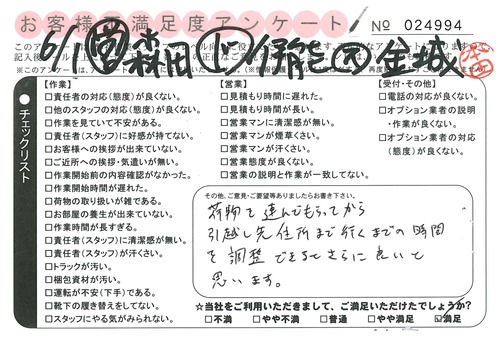 お客様満足度アンケート
No 024994
6/1
チェックリスト
【作業】
□責任者の対応(態度)が良くない。
□他のスタッフの対応(態度)が良くない。
□作業を見ていて不安がある。
□責任者(スタッフ)に好感が持てない。
□お客様への挨拶が出来ていない。
□ご近所への挨拶・気遣いが無い。
□作業開始前の内容確認がなかった。
□作業開始時間が遅れた。
□荷物の取り扱いが雑である。
□お部屋の養生が出来ていない。
□作業時間が長すぎる。
□責任者(スタッフ)に清潔感が無い。
□責任者(スタッフ)が汗くさい。
□トラックが汚い。
□梱包資材が汚い。
□運転が不安(下手)である。
□靴下の履き替えをしてない。
□スタッフにやる気がみられない。
【営業】
□見積もり時間に遅れた。
□見積もり時間が長い。
□営業マンに清潔感が無い。
□営業マンが煙草くさい。
□営業マンが汗くさい。
□営業態度が良くない。
□営業の説明と作業が一致してない。
【受付・その他】
□電話の対応が良くない。
□オプション業者の説明
・作業が良くない。
□オプション業者の対応
(態度)が良くない。
その他、ご意見・ご要望等ありましたらお書き下さい。
荷物を運んでもらってから
引越し先住所まで行くまでの時間
を調整できるとさらに良いと
思います。
☆当社をご利用いただきまして、ご満足いただけたでしょうか?
□不満 □やや不満 □普通 □やや満足 ☑満足